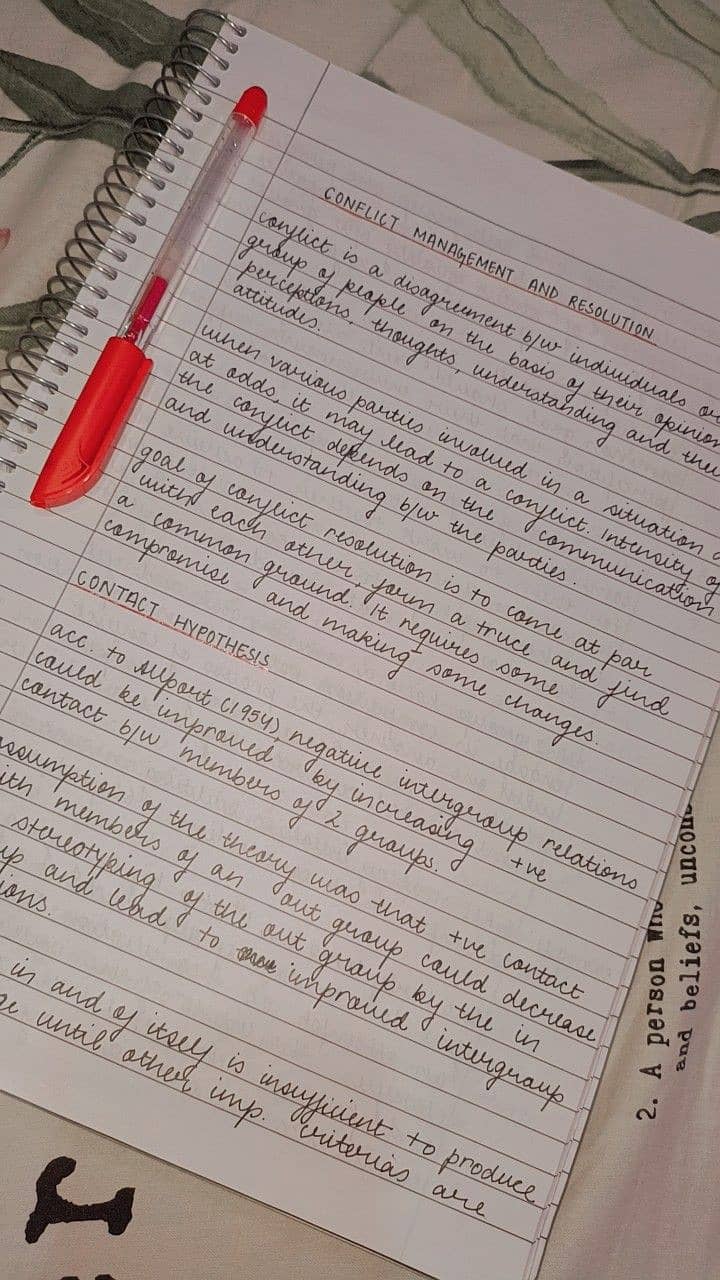 CONFLICT MANAGEMENT AND RESOLUTION
conflict is a disagreement b/w individuals or
group of people on the basis of their opinion
perceptions, thoughts, understanding and their
attitudes.
when various parties involved in a situation
at odds it may lead to a conflict. Intensity of
the conflict depends on the communication
and understanding b/w the parties.
goal of conflict resolution is to come at par
with each other, form a truce and find
a common ground. It requires some
compromise and making some changes.
CONTACT HYPOTHESIS
acc. to Allport (1954), negative intergroup relations
could be improved by increasing +ve
contact b/w members of 2 groups.
assumption of the theory was that +ve contact
with members of an out group could decrease
stereotyping of the out group by the in
up and lead to improved intergroup
ions.
in and of itself is insufficient to produce
until other imp. criterias are
2. A person who
and beliefs,